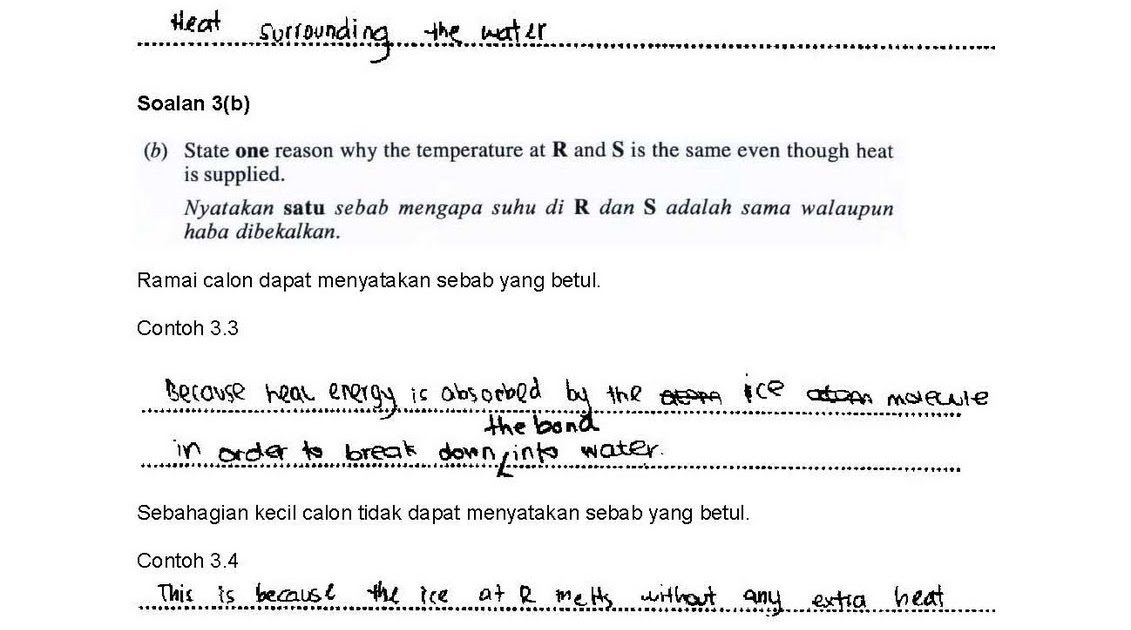 Heat surrounding the water
Soalan 3(b)
(b) State one reason why the temperature at R and S is the same even though heat
is supplied.
Nyatakan satu sebab mengapa suhu di R dan S adalah sama walaupun
haba dibekalkan.
Ramai calon dapat menyatakan sebab yang betul.
Contoh 3.3
Because heat energy is absorbed by the ice molecule
the bond
in order to break down into water.
Sebahagian kecil calon tidak dapat menyatakan sebab yang betul.
Contoh 3.4
This is because the ice at R melts without any extra heat